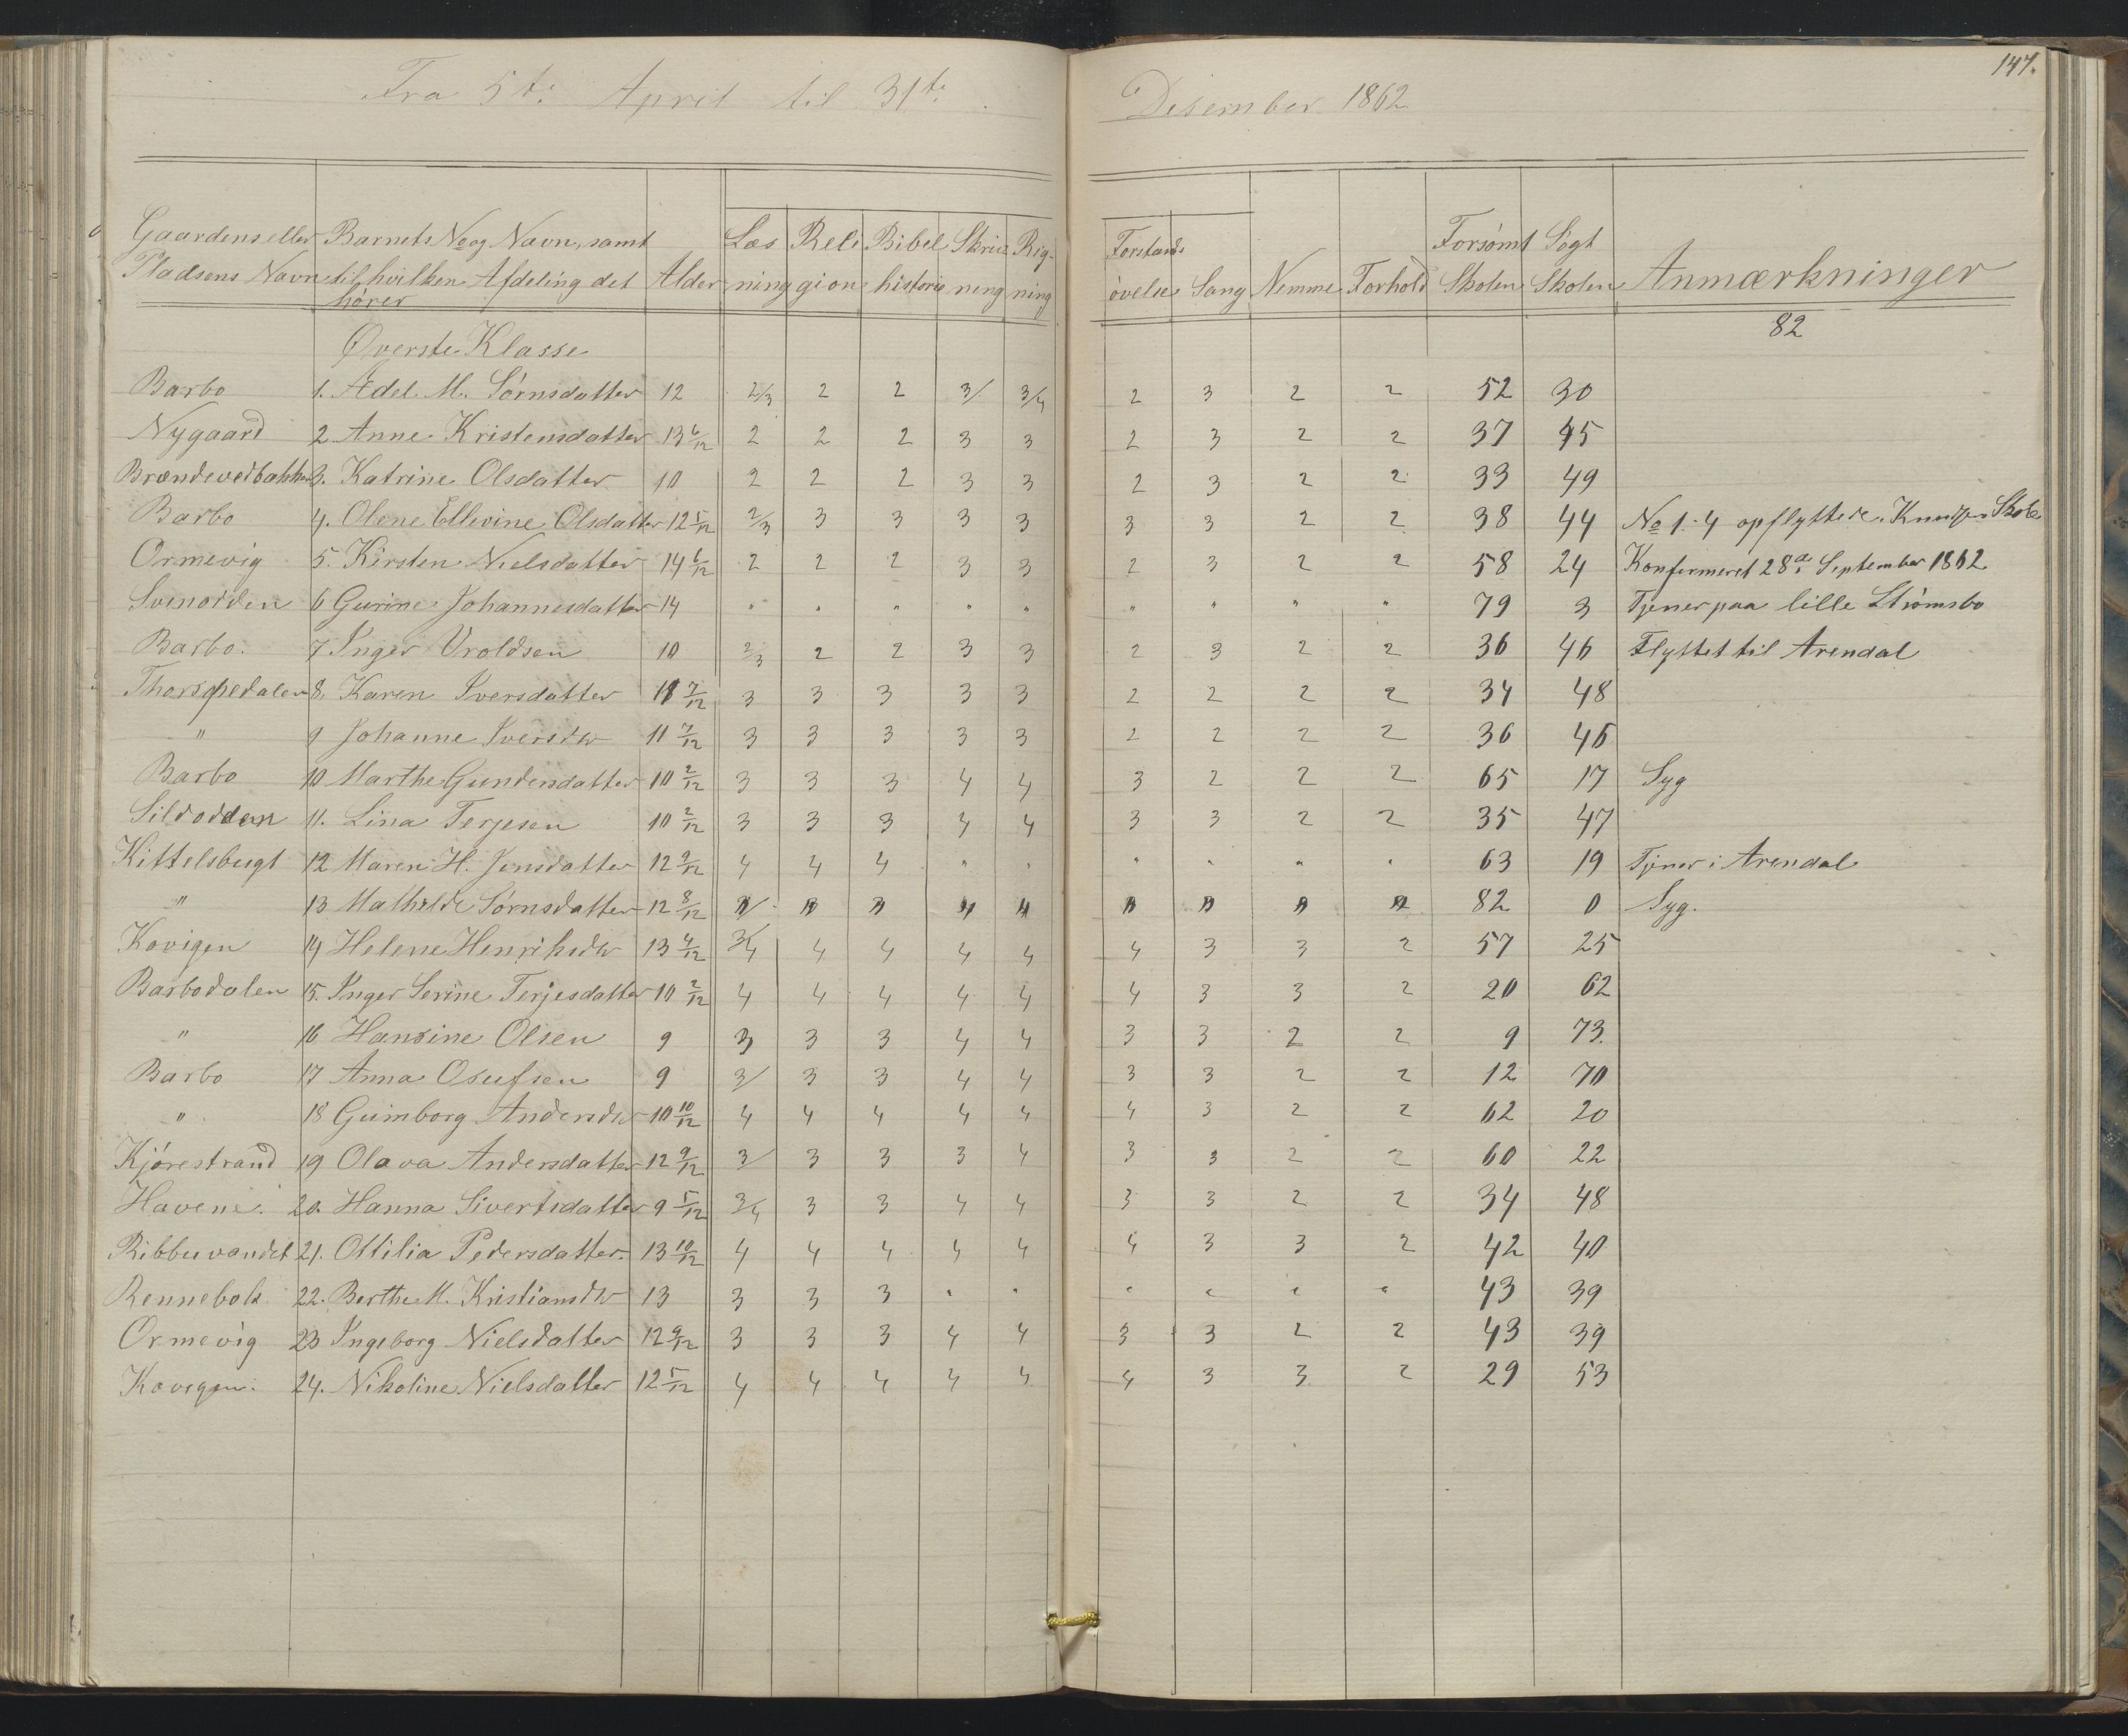 147.
Fra 5te April til 31te Desember 1862
Gaardens eller Pladsens Navn | Barnets No og Navn, samt til hvilken Afdeling det hører | Alder | Læsning | Religion | Bibelhistorie | Skrivening | Rigning | Forstandsøvelse | Sang | Nemme | Forhold | Forsømt Skolen | Søgt Skolen | Anmærkninger
Øverste Klasse | 82
Barbo 1. Adel M. Sørnsdatter 12 2/3 2 2 3/ 3/4 2 3 2 2 52 30
Nygaard 2 Anne Kristensdatter 13 6/12 2 2 2 3 3 2 3 2 2 37 45
Brændevedbakken 3. Katrine Olsdatter 10 2 2 2 3 3 2 3 2 2 33 49
Barbo 4. Olene Ellevine Olsdatter 12 5/12 2/3 3 3 3 3 3 3 2 2 38 44 No 1-4 opflyttede i Skole
Ormevig 5. Kirsten Nielsdatter 14 6/12 2 2 2 3 3 2 3 2 2 58 24 Konfirmeret 28de September 1862
Svinodden 6 Gurine Johannesdatter 14 " " " " " " " " " 79 3 Tjener paa lille Strømsbo
Barbo. 7 Inger Uroldsen 10 2/3 2 2 3 3 2 3 2 2 36 46 Flyttet til Arendal
Thorspedalen 8. Karen Iversdatter 11 7/12 3 3 3 3 3 2 2 2 2 34 48
" 9 Johanne Iversdtr 11 7/12 3 3 3 3 3 2 2 2 2 36 46
Barbo 10 Marthe Gundersdatter 10 2/12 3 3 3 4 4 3 2 2 2 65 17 Syg
Sildodden 11. Lina Terjesen 10 2/12 3 3 3 4 4 3 3 2 2 35 47
Kittelsbugt 12 Maren H. Jensdatter 12 9/12 4 4 4 " " " " " " 63 19 Tjener i Arendal
" 13 Mathilde Sørnsdatter 12 8/12 " " " " " " " " " 82 0 Syg.
Kovigen 14 Helene Henriksdtr 13 4/12 3/4 4 4 4 4 4 3 3 2 57 25
Barbodalen 15. Inger Serine Terjesdatter 10 2/12 4 4 4 4 4 4 3 3 2 20 62
" 16 Hansine Olsen 9 3 3 3 4 4 3 3 2 2 9 73.
Barbo 17 Anna Osufsen 9 3/ 3 3 4 4 3 3 2 2 12 70
" 18 Guimborg Andersdtr 10 10/12 4 4 4 4 4 4 3 2 2 62 20
Kjørestrand 19 Olava Andersdatter 12 9/12 3/ 3 3 3 4 3 3 2 2 60 22
Havene. 20. Hanna Sivertsdatter 9 5/12 3/4 3 3 4 4 3 3 2 2 34 48
Ribbuvandet 21. Ottilia Pedersdatter. 13 10/12 4 4 4 4 4 4 3 3 2 42 40
Rennebok 22. Berthe M. Kristiansdtr 13 3 3 3 " " " " " " 43 39
Ormevig 23 Ingeborg Nielsdatter 12 9/12 3 3 3 4 4 3 3 2 2 43 39
Kovigen. 24. Nikoline Nielsdatter 12 5/12 4 4 4 4 4 4 3 3 2 29 53